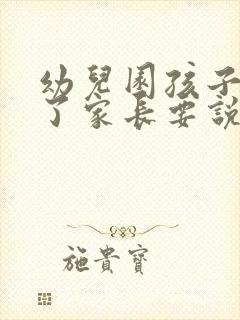 幼兒園孩子
了家長要説
施貴寶